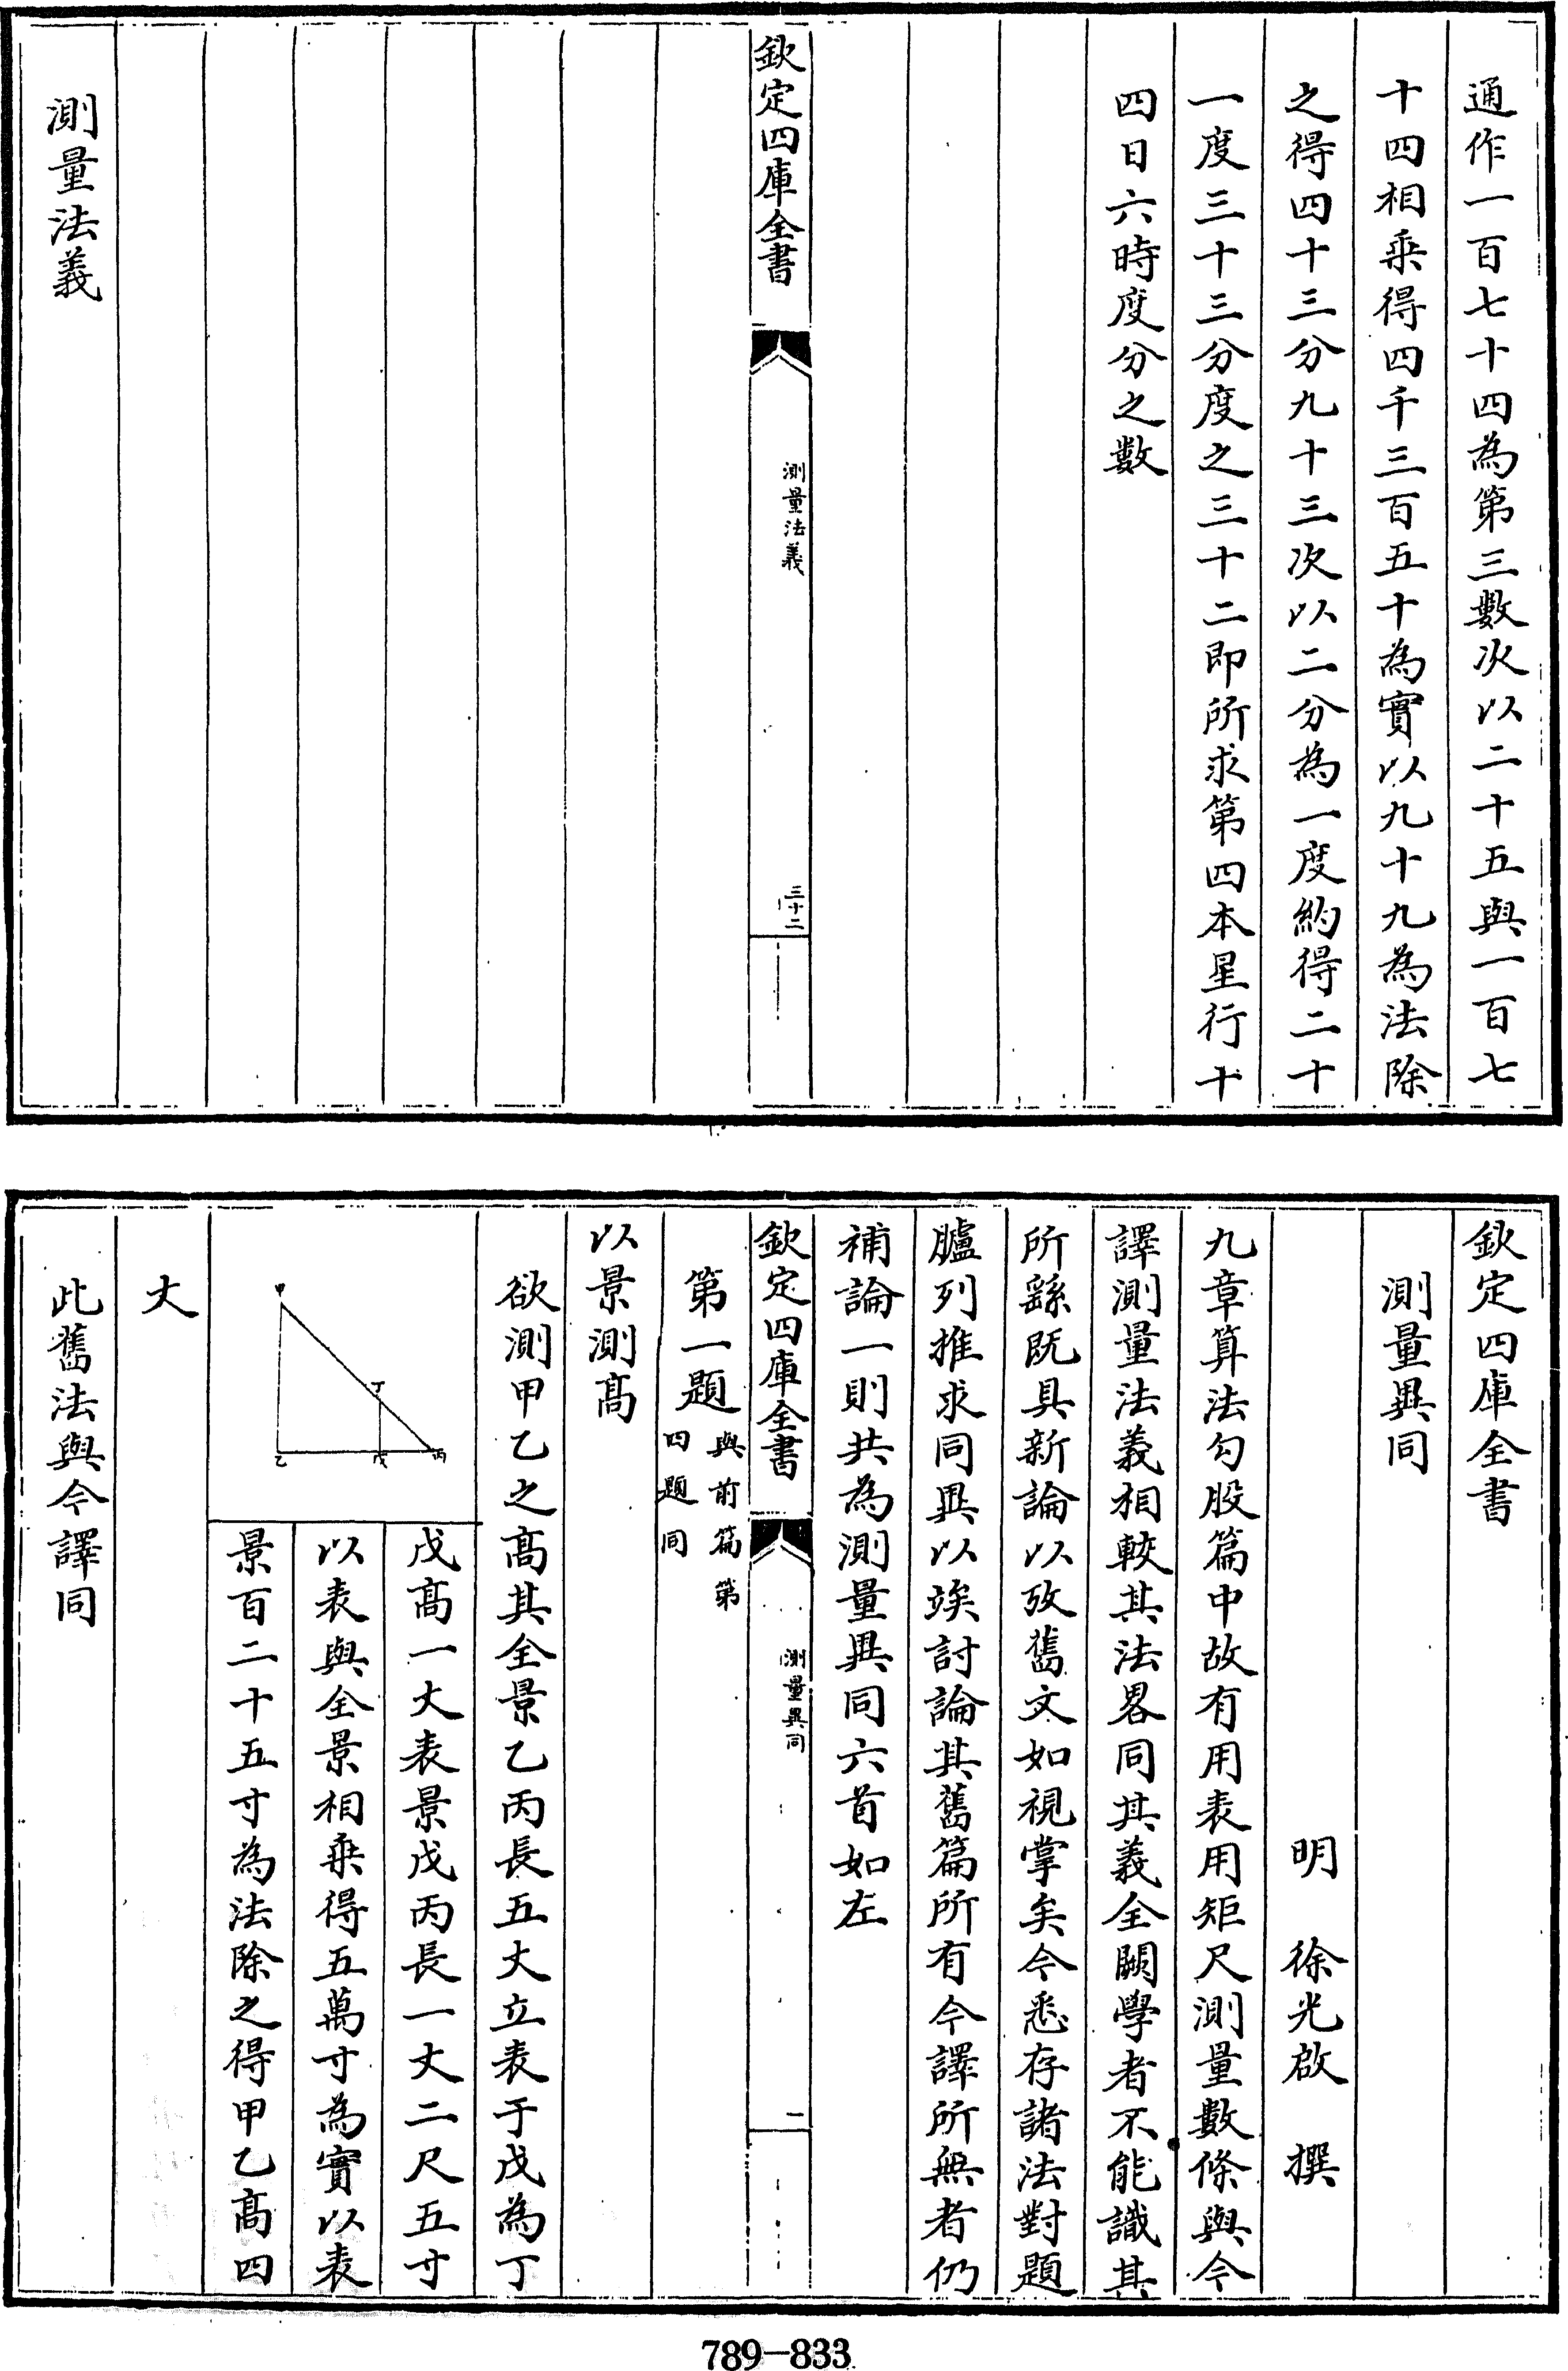 通作一百七十四為第三數次以二十五與一百七
十四相乘得四千三百五十為實以九十九為法除
之得四十三分九十三次以二分為一度約得二十
一度三十三分度之三十二即所求第四本星行十
四日六時度分之數
欽定四庫全書
測量法義
三十二
測量法義
欽定四庫全書
測量異同
明 徐光啟 撰
九章算法勾股篇中故有用表用矩尺測量數條與今
譯測量法義相較其法畧同其義全闕學者不能識其
所繇既具新論以攷舊文如視掌矣今悉存諸法對題
臚列推求同異以竢討論其舊篇所有今譯所無者仍
補論一則共為測量異同六首如左
欽定四庫全書
測量異同
一
第一題與前篇第
四題同
以景測高
欲測甲乙之高其全景乙丙長五丈立表于戊為丁
甲
丁
乙
戊
丙
戊高一丈表景戊丙長一丈二尺五寸
以表與全景相乘得五萬寸為實以表
景百二十五寸為法除之得甲乙高四
丈
此舊法與今譯同
789-833